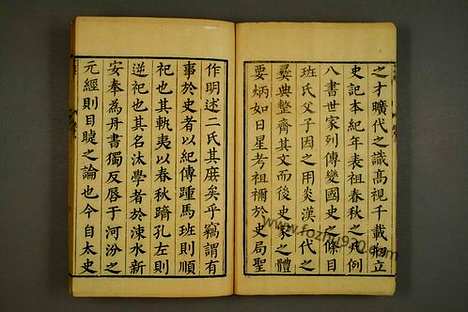 之才曠代之識高視千載創立
史記本紀年表祖春秋之凡例
八書世家列傳變國史之條目
班氏父子因之用炎漢一代之
彞典整齊其文而後史家之體
要炳如日星考祖禰於史局聖
作明述二氏其庶矣乎竊謂有
事於史者以紀傳踵馬班則順
祀也其軌夷以春秋躋孔左則
逆祀也其名汰學者於涑水新
安奉為丹書獨反唇于河汾之
元經則目睫之論也今自太史